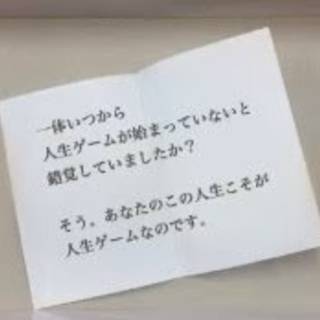 一体いつから
人生ゲームが始まっていないと
錯覚していましたか？
そう。あなたのこの人生こそが
人生ゲームなのです。